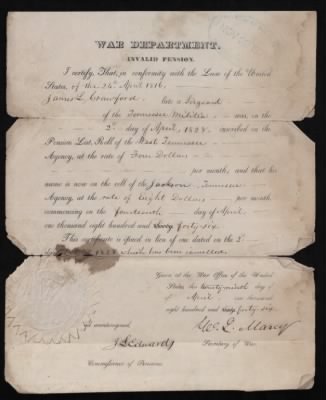 WAR DEPARTMENT.
INVALID PENSION.
I certify, That, in conformity with the Law of the United
States, of the 24th April 1816,
James L. Crawford late a Sergeant
of the Tennessee Militia was, on the
2d day of April, 1828, inscribed on the
Pension List, Roll of the West Tennessee
Agency, at the rate of Four Dollars
per month, and that his
name is now on the roll of the Jackson, Tennessee
Agency, at the rate of Eight Dollars per month
commencing on the fourteenth day of April
one thousand eight hundred and forty-six
This certificate is given in lieu of one dated on the 2d
1828 which has been cancelled.
Given at the War Office of the United
States, this twenty-ninth day of
April one thousand
eight hundred and forty-six
W. L. Marcy
Secretary of War.
countersigned,
J. L. Edwards
Commissioner of Pensions.